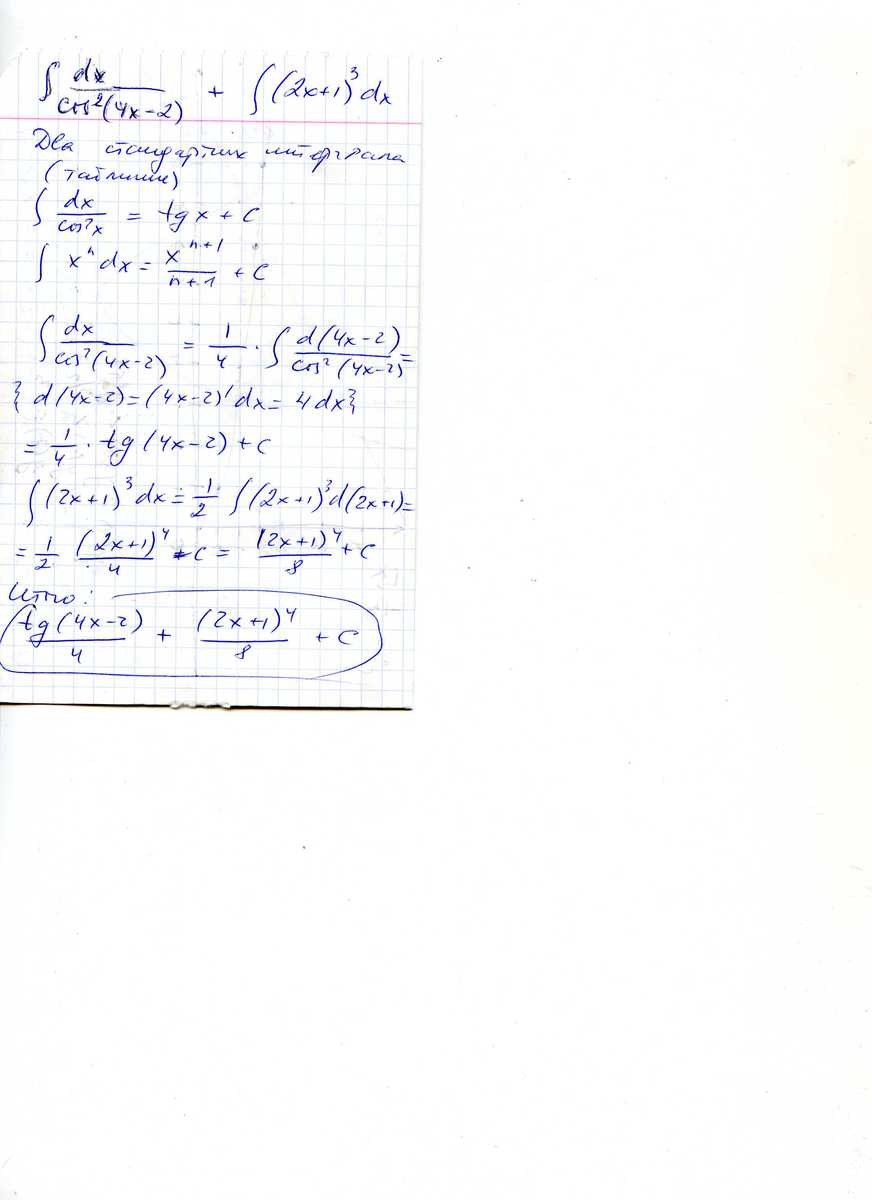 ∫ dx/cos²(4x-2) + ∫(2x+1)³dx
Два стандартных интеграла
(табличные)
∫ dx/cos²x = tg x + C
∫ xⁿdx = xⁿ⁺¹/(n+1) + C
∫ dx/cos²(4x-2) = 1/4 · ∫ d(4x-2)/cos²(4x-2) =
{ d(4x-2)=(4x-2)'dx= 4dx}
= 1/4 · tg(4x-2)+C
∫(2x+1)³dx = 1/2 ∫(2x+1)³d(2x+1)=
= 1/2 (2x+1)⁴/4 + C = (2x+1)⁴/8 + C
Итого:
tg(4x-2)/4 + (2x+1)⁴/8 + C